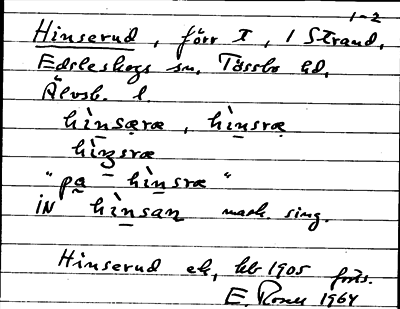 1-2
Hinserud, förr T, 1 Strand,
Edsleskogs sn, Tössbo hd,
Älvsb. l.
hìnsæræ, hìnsræ
hìnsræ
"pa hìnsræ"
IN hìnsan mask. sing.
Hinserud ek, kb 1905 förs.
E. Rosell 1964